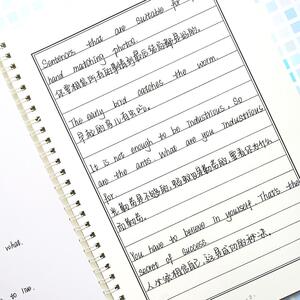 Sentences that are suitable for
hand matching photos
The early bird catches the worm.
早起的鸟儿有虫吃。
It is not enough to be industrious, so
are the ants. What are you industrious
for.
光勤劳是不够的,蚂蚁也是勤劳的,要看你为什么
而勤劳。
You have to believe in yourself. That's the
secret of success.
人必须相信自己,这是成功的秘诀。
what.
to law.